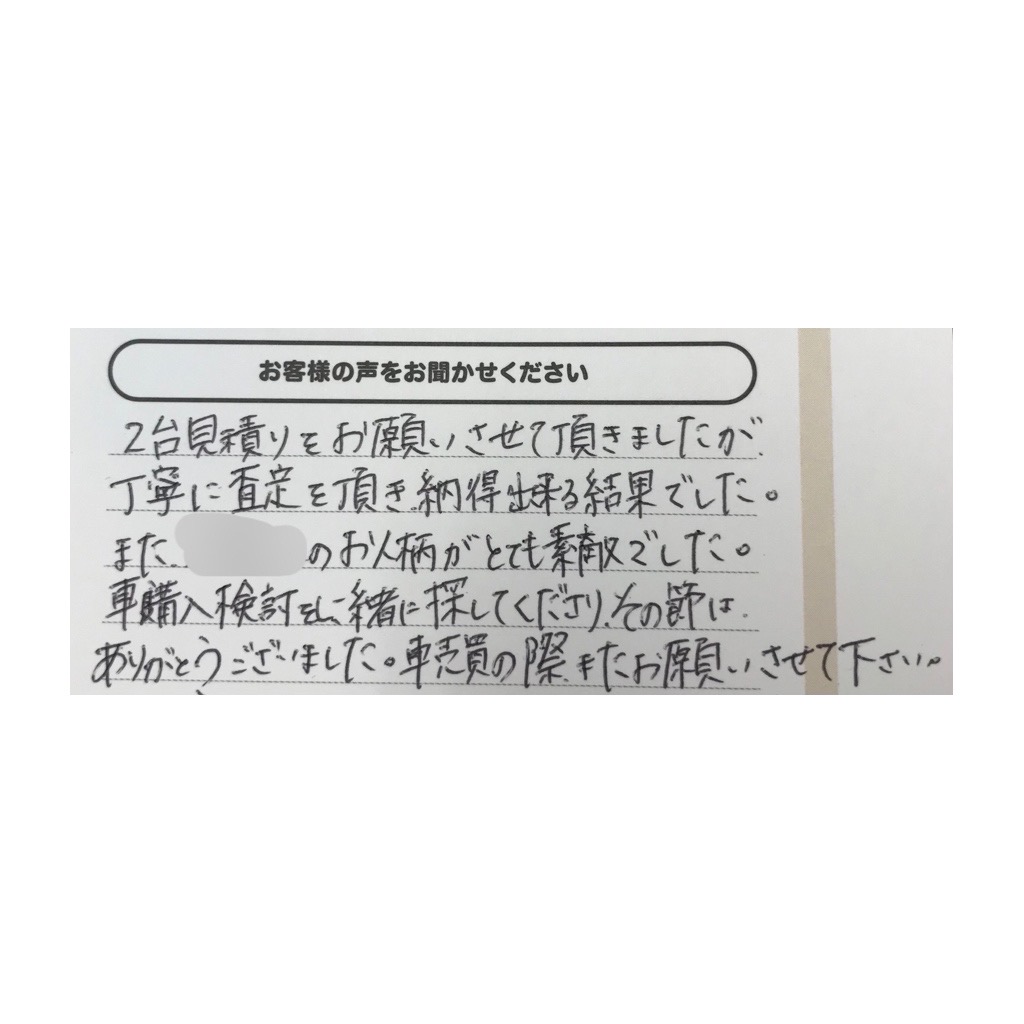 お客様の声をお聞かせください
2台見積りをお願いさせて頂きましたが、
丁寧に査定を頂き納得出来る結果でした。
また のお人柄がとても素敵でした。
車購入検討をし、一緒に探してくださり、その節は
ありがとうございました。車売買の際またお願いさせて下さい。